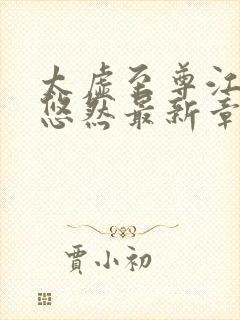 太虚至尊江
悠然最新章
贾小初